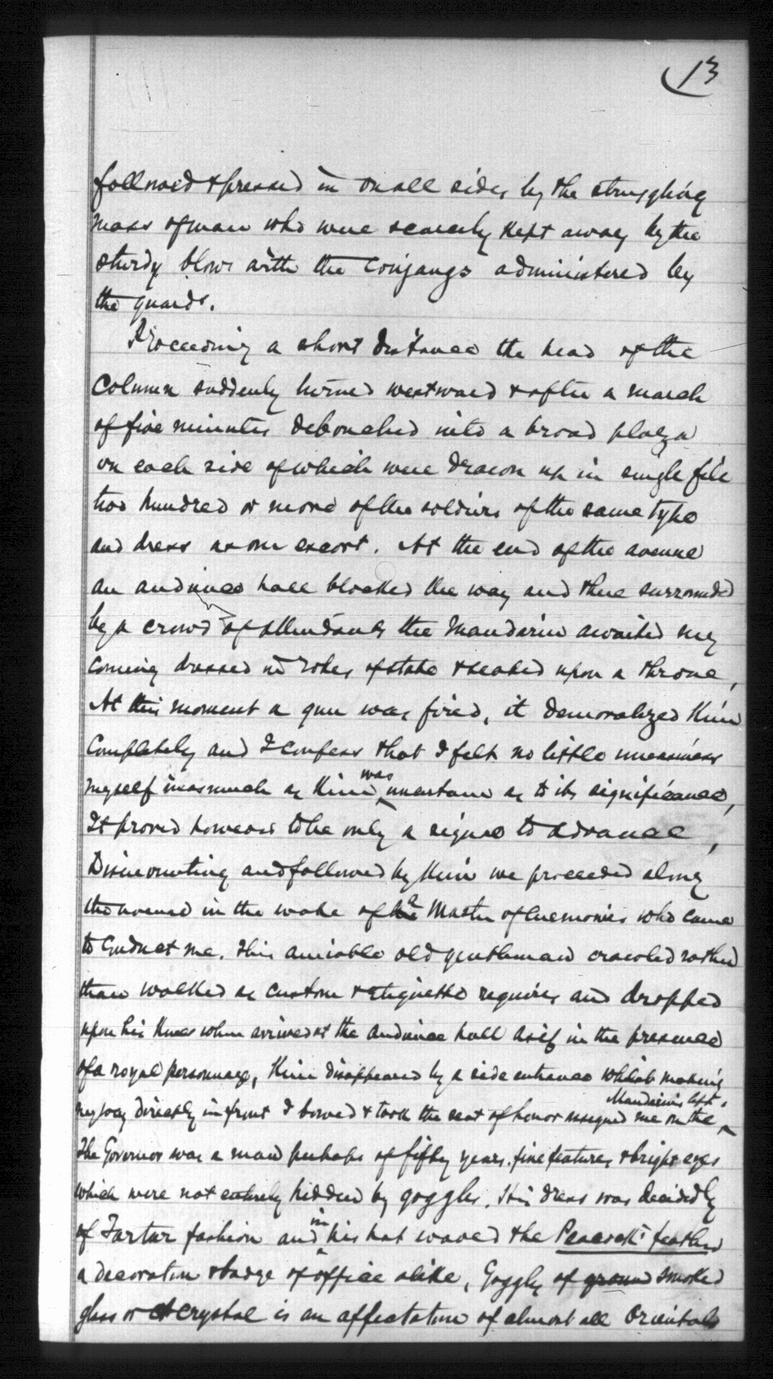 13
followed & pressed in on all sides by the struggling
mass of man who were scarcely kept away by the
sturdy blows with the administered by
the guards.
Proceeding a short distance the head of the
column suddenly turned westward & after a march
of five minutes debouched into a broad plaza
on each side of which were drawn up in single file
two hundred or more of the soldiers of the same type
and dress as our escort. At the end of the avenue
an audience hall blocked the way and there surrounded
by a crowd of attendants the Mandarin awaited my
coming dressed in robes of state & seated upon a throne,
At this moment a gun was fired, it demoralized Kim
completely and I confess that I felt no little uneasiness
myself inasmuch as Kim was uncertain as to its significance,
It proved however to be only a signal to advance,
Dismounting and followed by Kim we proceeded along
the avenue in the wake of the Master of Ceremonies who came
to conduct me. This amiable old gentleman crawled rather
than walked as custom & etiquette requires and dropped
upon his knees when arrived at the audience hall as if in the presence
of a royal personage, Kim disappeared by a side entrance whilst making
my way directly in front I bowed & took the seat of honor assigned me on the Mandarin's left.
The Governor was a man perhaps of fifty years, fine features & bright eyes
which were not entirely hidden by goggles. His dress was decidedly
of Tartar fashion and in his hat waved the Peacock's feather
a decoration & badge of office alike, Goggles of ground smoked
glass or crystal is an affectation of almost all Orientals